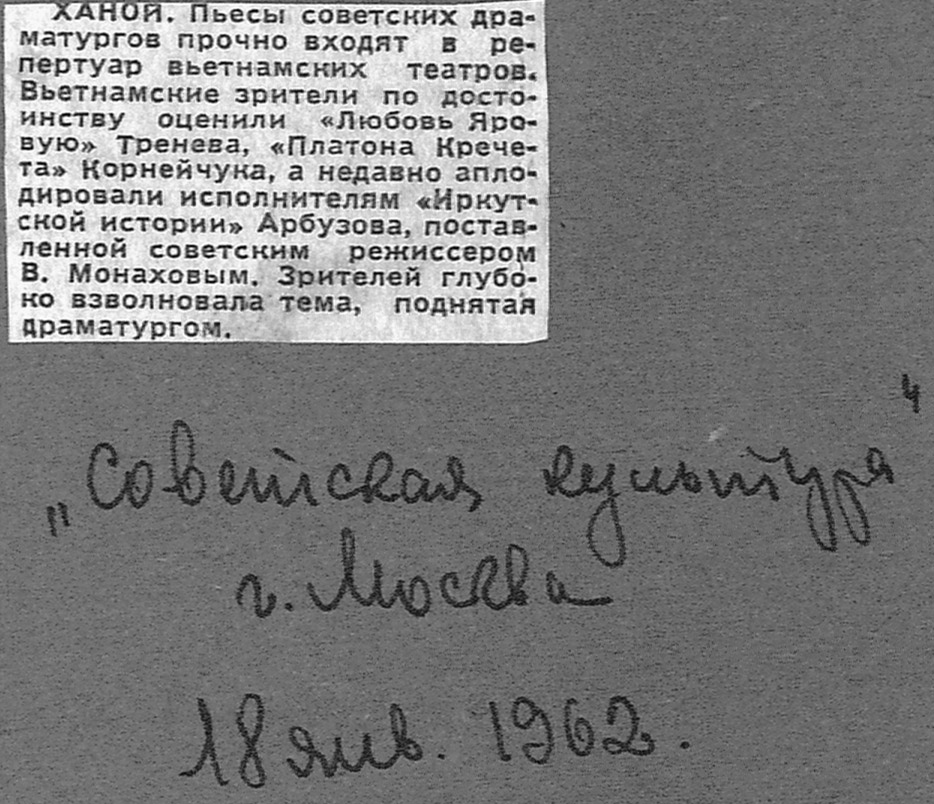 ХАНОЙ. Пьесы советских дра-
матургов прочно входят в ре-
пертуар вьетнамских театров.
Вьетнамские зрители по досто-
инству оценили «Любовь Яро-
вую» Тренева, «Платона Крече-
та» Корнейчука, а недавно апло-
дировали исполнителям «Иркут-
ской истории» Арбузова, постав-
ленной советским режиссером
В. Монаховым. Зрителей глубо-
ко взволновала тема, поднятая
драматургом.
„Советская культура“
г. Москва
18 янв. 1962.